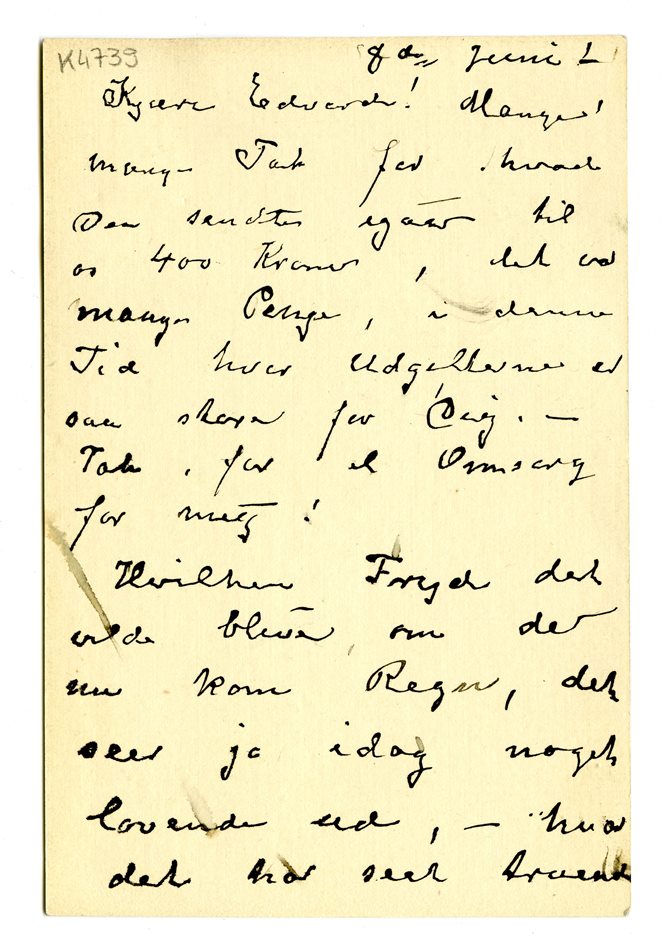 K4739
8de Juni
Kjære Edvard! Mange!
mange Tak for hvad
Du sendte igaar til
os 400 Kroner, det var
mange Penge, i denne
Tid hvor Udgifterne er
saa store for Dig. —
Tak, for al Omsorg
for mig!
Hvilken Fryd det
vilde blive om det
nu kom Regn, det
seer ja idag noget
lovende ud, — hvor
det har seet truende